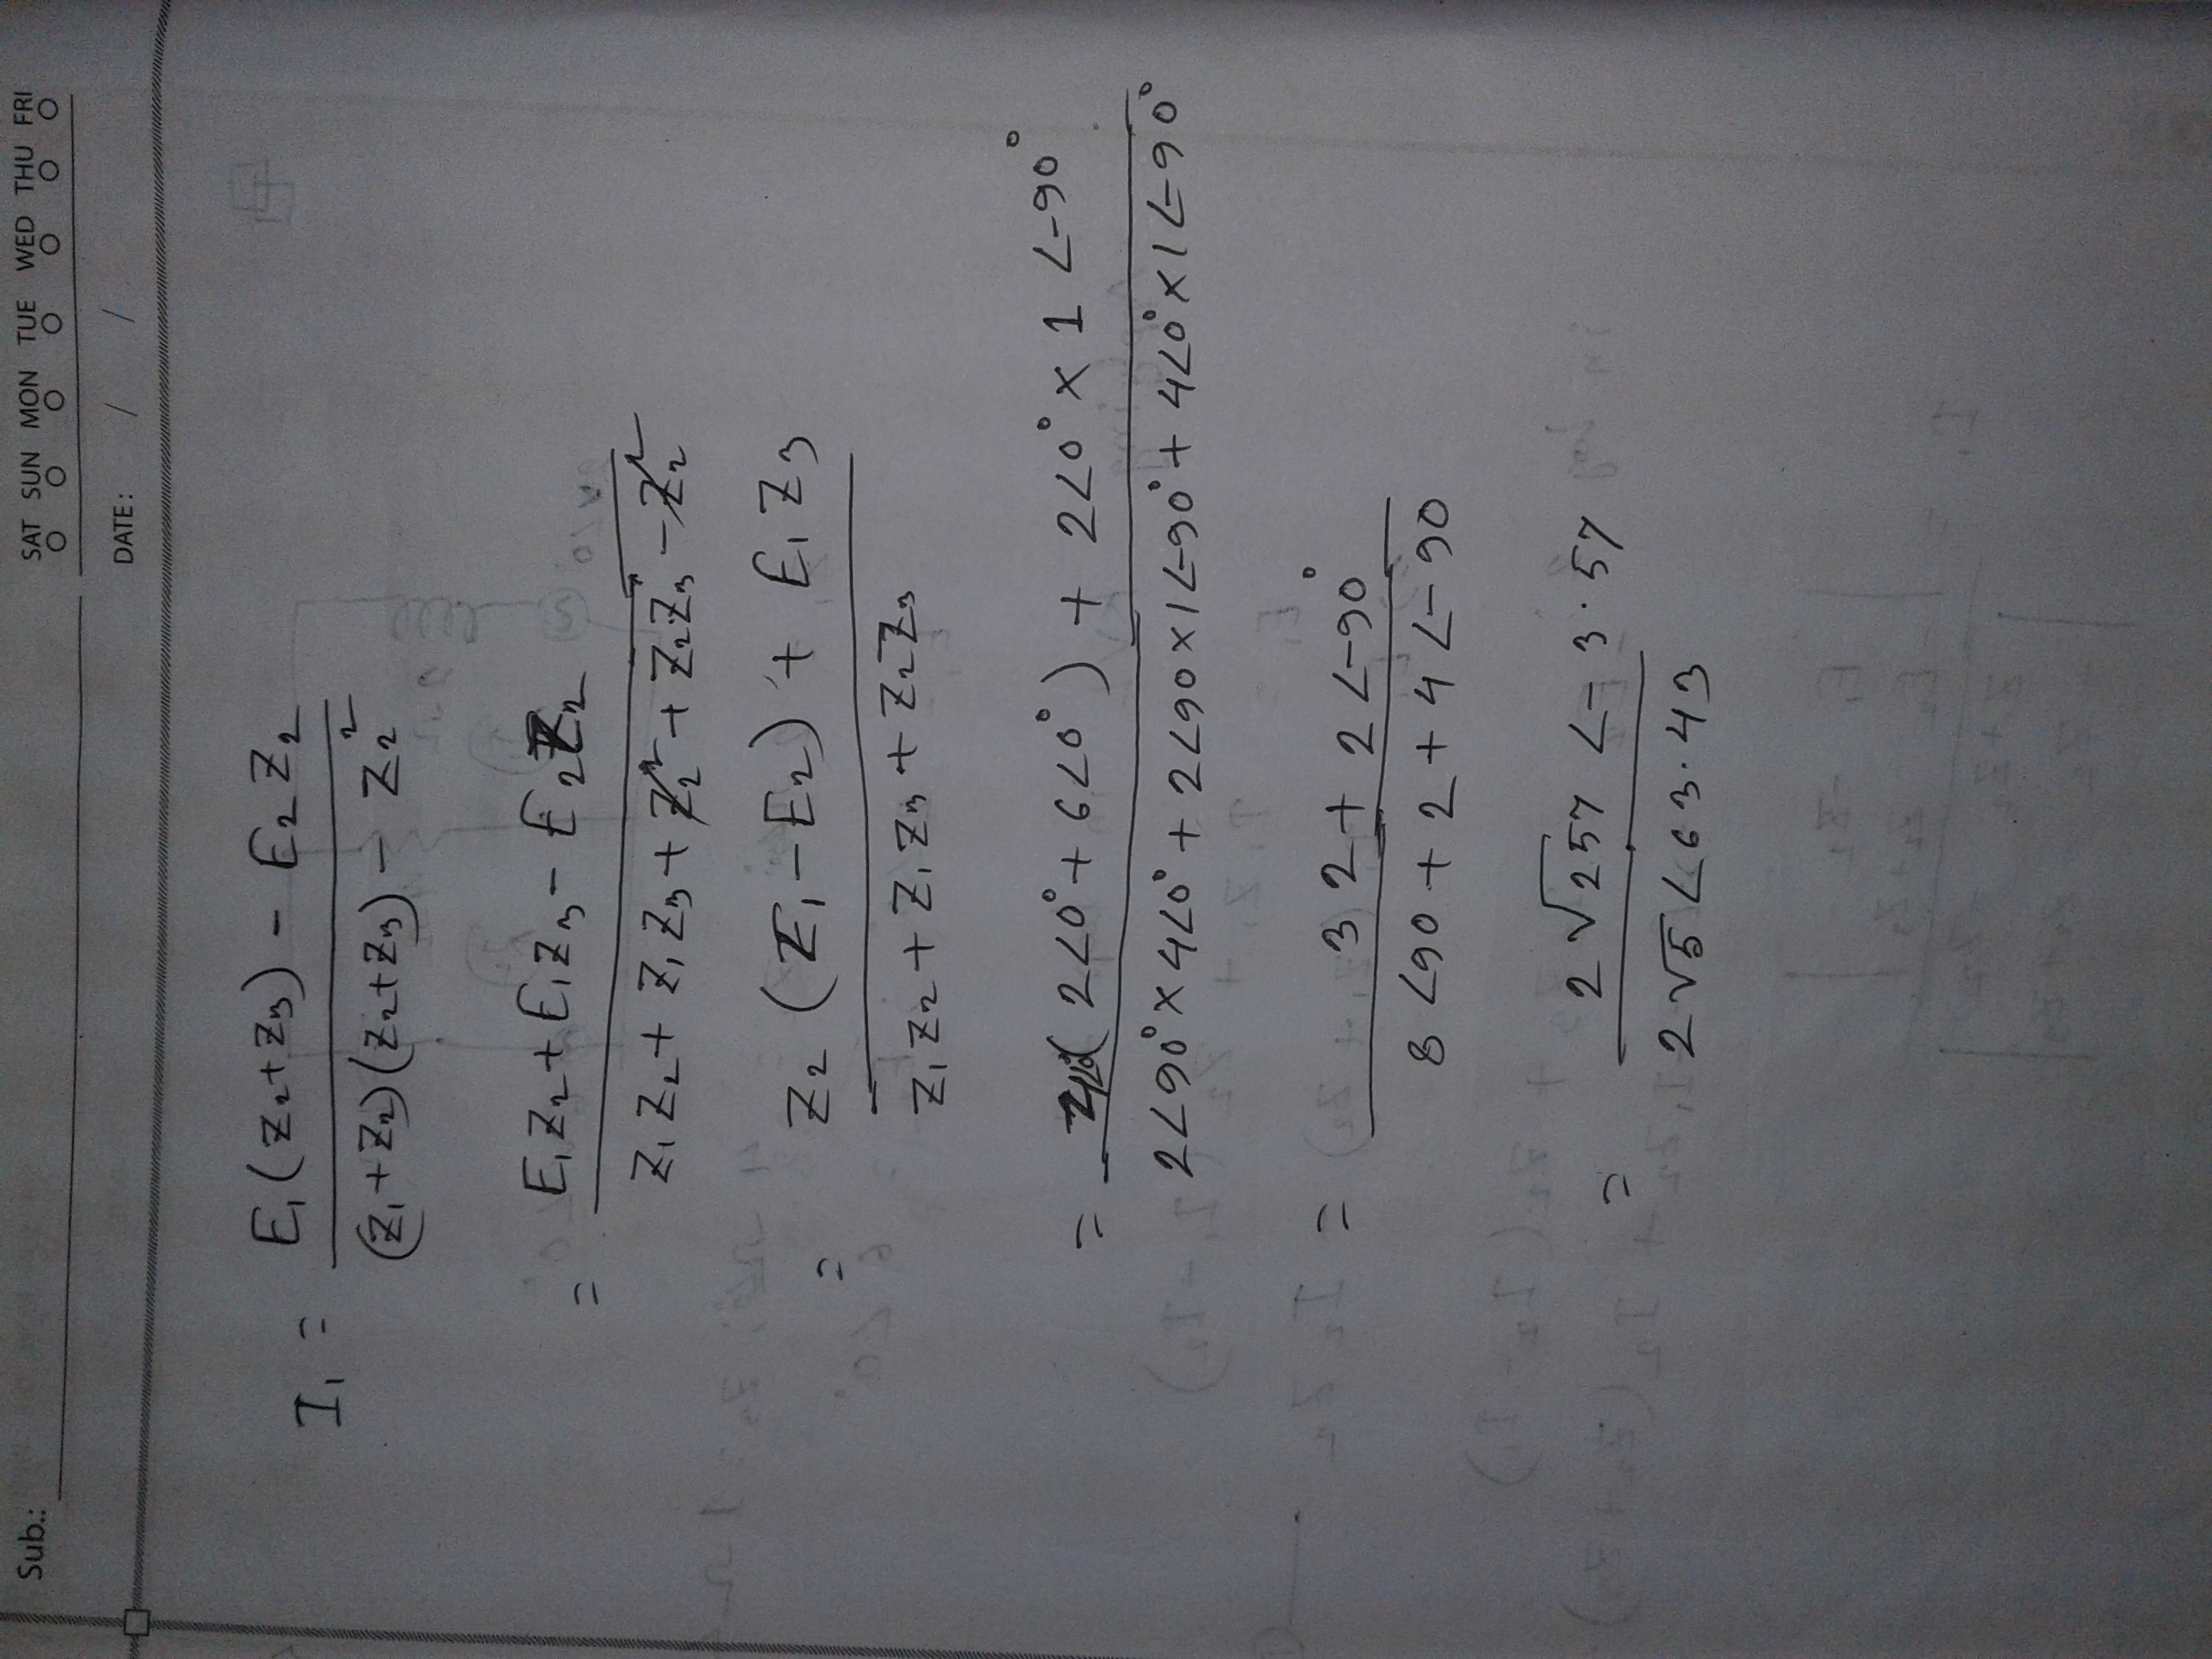 Sub.:
SAT SUN MON TUE WED THU FRI
DATE: / /
I₁ = (E₁(Z₂+Z₃) - E₂Z₂) / ((Z₁+Z₂)(Z₂+Z₃) - Z₂²)
= (E₁Z₂ + E₁Z₃ - E₂Z₂) / (Z₁Z₂ + Z₁Z₃ + Z₂² + Z₂Z₃ - Z₂²)
= (Z₂(E₁-E₂) + E₁Z₃) / (Z₁Z₂ + Z₁Z₃ + Z₂Z₃)
= ((2∠0° + 6∠0°) + 2∠0° × 1∠-90°) / (2∠90° × 4∠0° + 2∠90 × 1∠-90° + 4∠0° × 1∠-90°)
= (32 + 2∠-90°) / (8∠90 + 2 + 4∠-90)
= (2√257 ∠-3.57) / (2√5 ∠63.43)